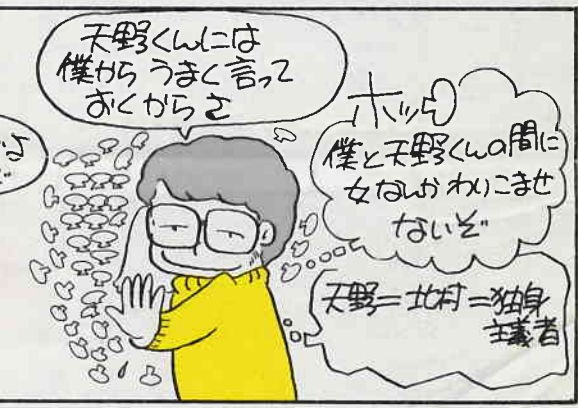 天野くんには
僕から うまく言って
おくからさ
ホッ
僕と天野くんの間に
女なんか わりこませ
ないぞ
天野=北村=独身
主義者